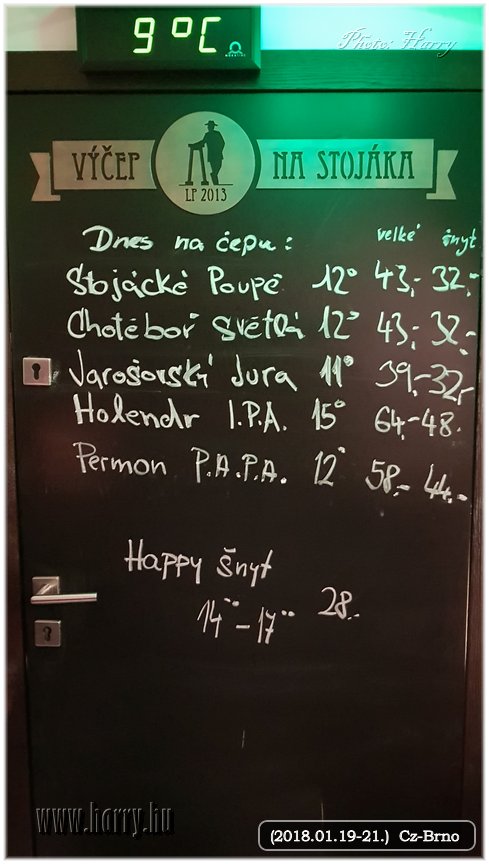 9°C
Photo: Harry
VÝČEP NA STOJÁKA
LP 2013
Dnes na čepu: velké šnyt
Stojácké Poupě 12° 43,- 32,-
Chotěboř světlá 12° 43,- 32,-
Jarošovský Jura 11° 39,- 32,-
Holendr I.P.A. 15° 64,- 48.
Permon P.A.P.A. 12° 58,- 44,-
Happy šnyt
14°° - 17°° 28,-
www.horry.hu
(2018.01.19-21.) Cz-Brno